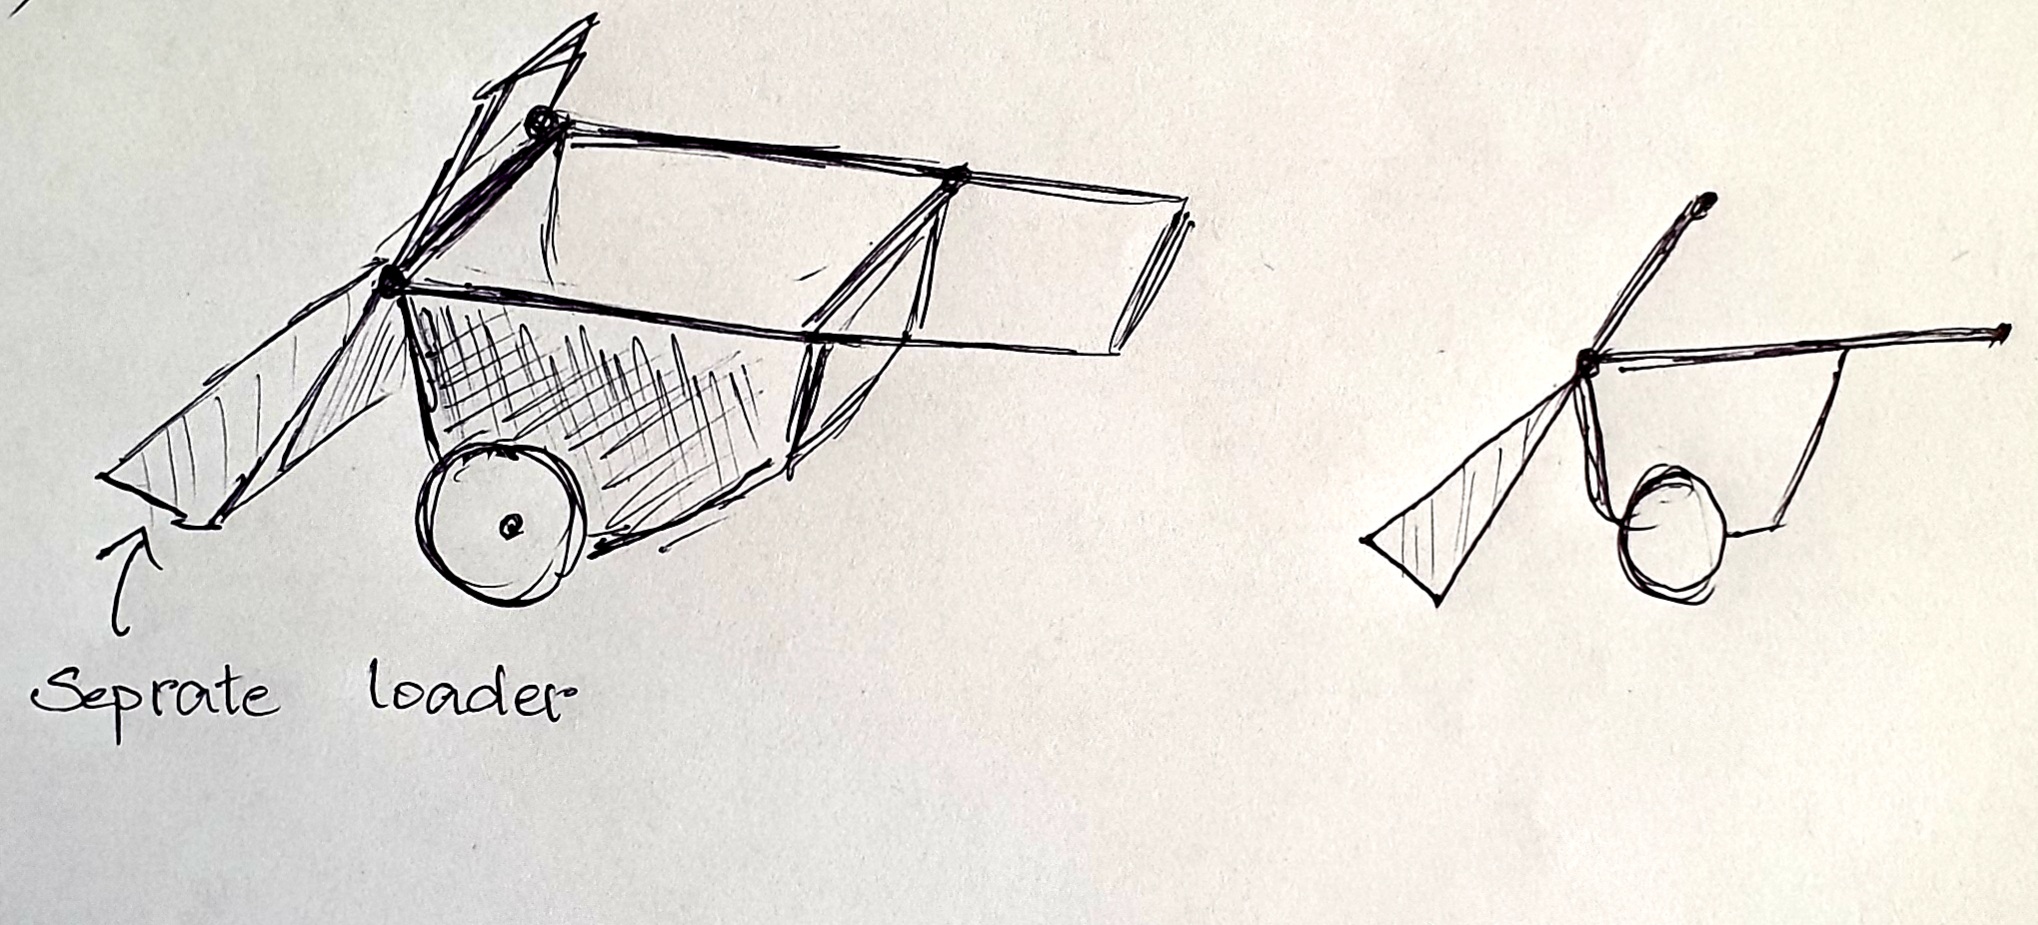 Seprate loader